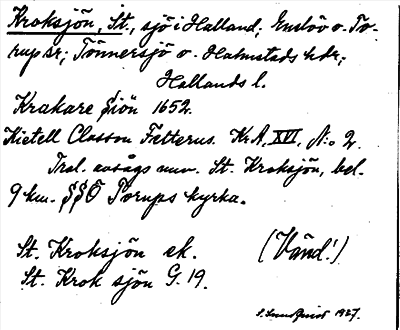 Kroksjön, St., sjö i Halland; Enslöv o. To-
rup sr; Tönnersjö o. Halmstads hdr;
Hallands l.
Krakare Siön 1652.
Kietell Classon Fatterus. KrA, XVI, N:o 2.
Trol. avsågs nuv. St. Kroksjön, bel.
9 km. SSÖ Torups kyrka.
St. Kroksjön ek. (Vänd!)
St. Krok sjön G. 19.
1927.